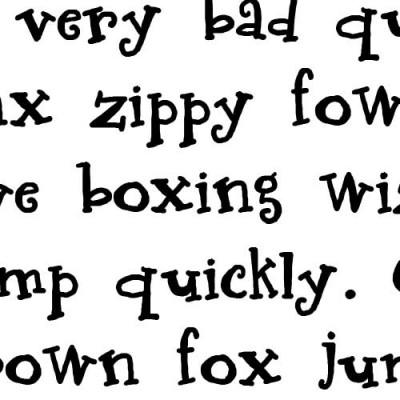 very bad qu
x zippy fow
ve boxing wiz
mp quickly.
own fox jum